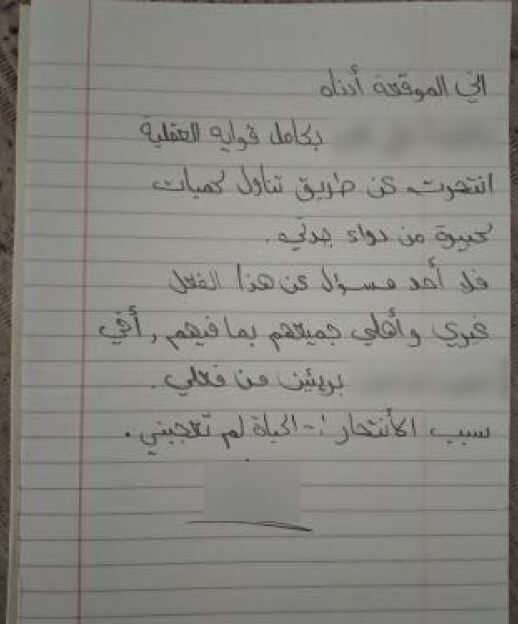 اني الموقعة أدناه
بكامل قوايه العقلية
انتحرت عن طريق تناول كميات
كبيرة من دواء جدتي.
فلا أحد مسؤل عن هذا الفعل
غيري وأهلي جميعهم بما فيهم, أخي
بريئين من فعلي.
سبب الأنتحار :- الحياة لم تعجبني.